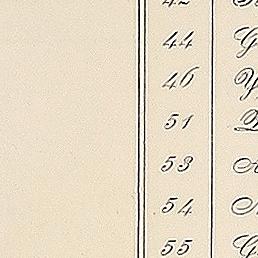 42
44 G
46 Y
51
53
54
55 G